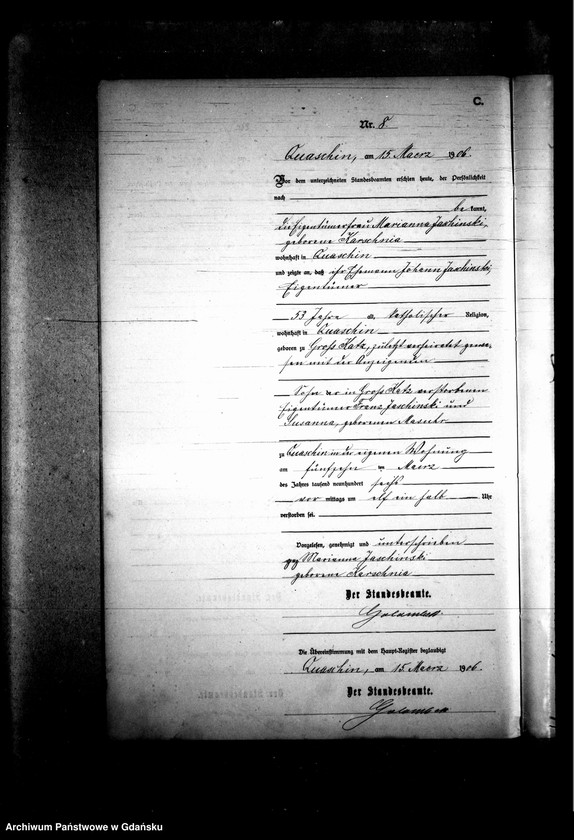 C.
Nr. 8
Quaschin, am 15. Maerz 1906.
Vor dem unterzeichneten Standesbeamten erschien heute, der Persönlichkeit
nach
be kannt,
die Eigentümerfrau Marianna Jaschinski,
geborene Karschnia
wohnhaft in Quaschin
und zeigte an, daß ihr Ehemann Johann Jaschinski,
Eigentümer
53 Jahre alt, katholischer Religion,
wohnhaft in Quaschin
geboren zu Groß Katz, zuletzt verheiratet gewe-
sen mit der Anzeigenden
Sohn der in Groß Katz verstorbenen
Eigentümer Franz Jaschinski und
Susanna, geborenen
zu Quaschin in der eigenen Wohnung
am fünfzehn ten Maerz
des Jahres tausend neunhundert sechs
vor mittags um elf ein halb Uhr
verstorben sei.
Vorgelesen, genehmigt und unterschrieben
gez Marianna Jaschinski
geborene Karschnia
Der Standesbeamte.
Die Übereinstimmung mit dem Haupt-Register beglaubigt
Quaschin, am 15. Maerz 1906.
Der Standesbeamte.
Archiwum Państwowe w Gdańsku